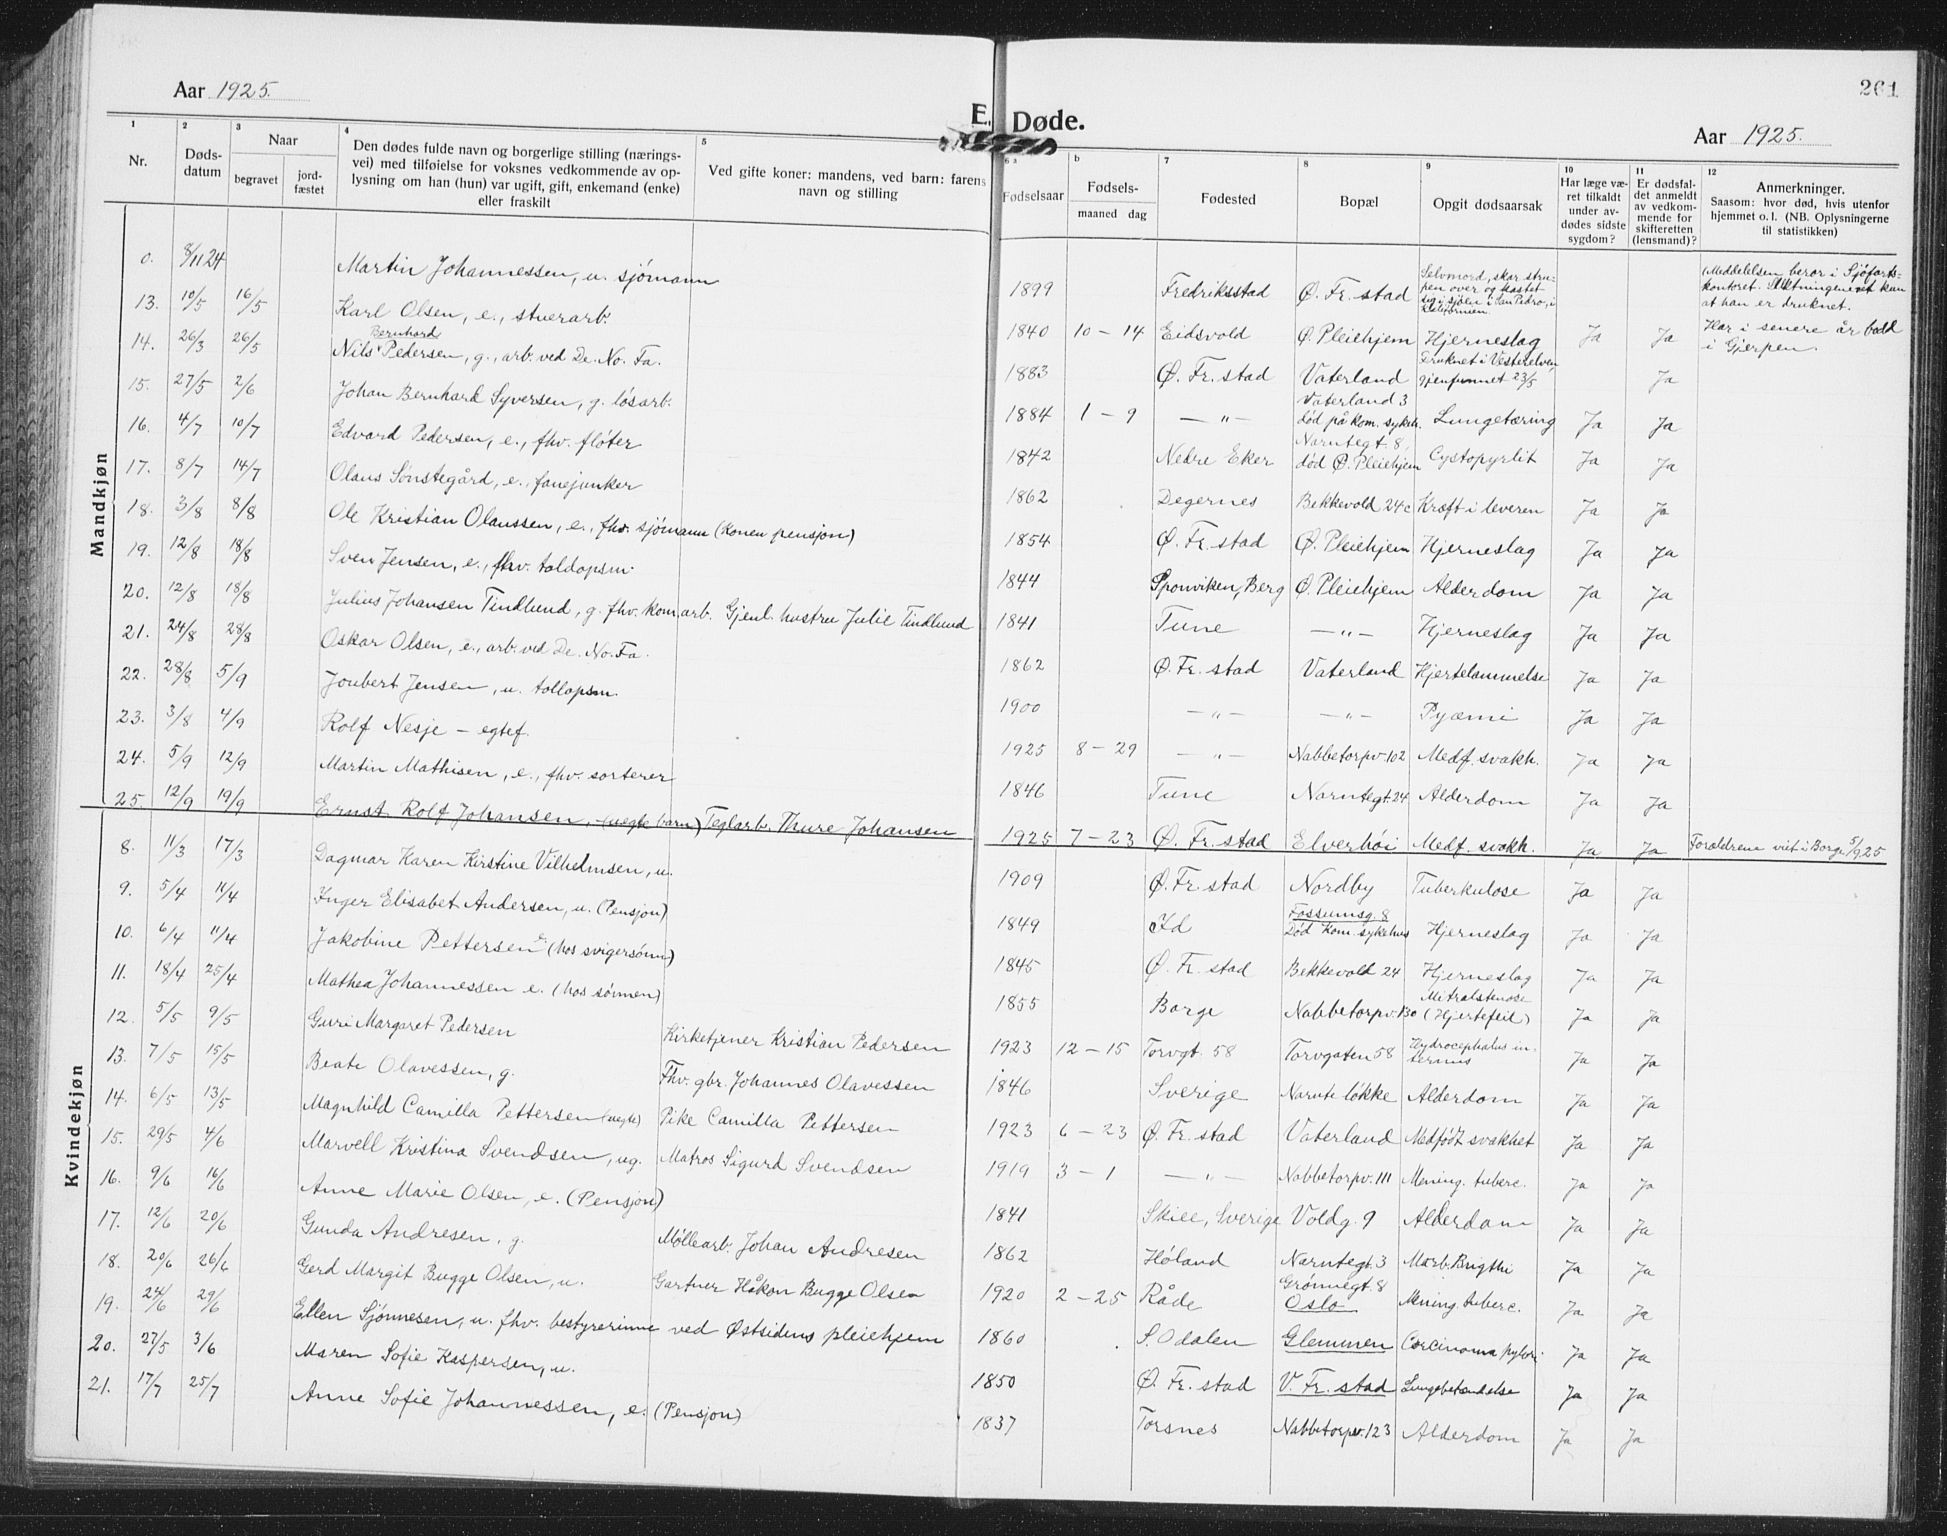 Aar 1925.
E. Døde.
Aar 1925.
261
1 Nr.
2 Døds-datum
3 Naar begravet jord-fæstet
4 Den dødes fulde navn og borgerlige stilling (nærings-vei) med tilføielse for voksnes vedkommende av op-lysning om han (hun) var ugift, gift, enkemand (enke) eller fraskilt
5 Ved gifte koner: mandens, ved barn: farens navn og stilling
6 a Fødselsaar
b Fødsels- maaned dag
7 Fødested
8 Bopæl
9 Opgit dødsaarsak
10 Har læge væ-ret tilkaldt under av-dødes sidste sygdom?
11 Er dødsfal-det anmeldt av vedkom-mende for skifteretten (lensmand)?
12 Anmerkninger. Saasom: hvor død, hvis utenfor hjemmet o. l. (NB. Oplysningerne til statistikken)
Mandkjøn
0. 8/11 24 Martin Johannessen, u. sjømann 1899 Fredriksstad Ø. Fr. stad Selvmord, skar stru-pen over og kastet sig i sjøen i San Pedro, i (Meddelelsen beror i Sjøfarts-kontoret. kun at han er druknet.
13. 10/5 16/5 Karl Olsen, e., stuerarb. 1840 10 – 14 Eidsvold Ø. Pleiehjem Hjerneslag Ja Ja Har i senere år bodd i Gjerpen.
14. 26/3 26/5 Nils Bernhard Pedersen, g., arb. ved De. No. Fa. 1883 Ø. Fr. stad Vaterland Druknet i Vesterelven, gjenfunnet 23/5 Ja
15. 27/5 2/6 Johan Bernhard Syversen, g. løsarb. 1884 1 – 9 – " – Vaterland 3 død på kom. sykeh. Lungetæring Ja Ja
16. 4/7 10/7 Edvard Pedersen, e., fhv. fløter 1842 Nedre Eker Narntegt. 8, død Ø. Pleiehjem Cystopyelit Ja Ja
17. 8/7 14/7 Olaus Sønstegård, e., fanejunker 1862 Degernes Bekkevold 24c Kræft i leveren Ja Ja
18. 3/8 8/8 Ole Kristian Olaussen, e., fhv. sjømann (Konen pensjon) 1854 Ø. Fr. stad Ø. Pleiehjem Hjerneslag Ja Ja
19. 12/8 18/8 Sven Jensen, e., fhv. toldopsm. 1844 Sponviken, Berg Ø. Pleiehjem Alderdom Ja Ja
20. 12/8 18/8 Julius Johansen Tindlund, g. fhv. kom. arb. Gjenl. hustru Julie Tindlund 1841 Tune – " – Hjerneslag Ja Ja
21. 24/8 28/8 Oskar Olsen, e., arb. ved De. No. Fa. 1862 Ø. Fr. stad Vaterland Hjertelammelse Ja Ja
22. 28/8 5/9 Joubert Jensen, u. tollopsm. 1900 – " – – " – Pyæmi Ja Ja
23. 3/8 4/9 Rolf Nesje – egtef. 1925 8 – 29 – " – Nabbetorpv. 102 Medf. svakh. Ja Ja
24. 5/9 12/9 Martin Mathisen, e., fhv. sorterer 1846 Tune Narntegt. 24 Alderdom Ja Ja
25. 12/9 19/9 Ernst Rolf Johansen, (uegte barn) Teglarb. Thure Johansen 1925 7 – 23 Ø. Fr. stad Elverhøi Medf. svakh. Ja Ja Forældrene viet i Borge 5/9 25
Kvindekjøn
8. 11/3 17/3 Dagmar Karen Kirstine Vilhelmsen, u. 1909 Ø. Fr. stad Nordby Tuberkulose Ja Ja
9. 5/4 11/4 Inger Elisabet Andersen, u. (Pensjon) 1849 Id Fossumsg. 8 Død Kom. sykehus Hjerneslag Ja Ja
10. 6/4 11/4 Jakobine Pettersen e. (hos svigersønn) 1845 Ø. Fr. stad Bekkevold 24 Hjerneslag Ja Ja
11. 18/4 25/4 Mathea Johannessen e. (hos sønnen) 1855 Borge Nabbetorpv. 130 Mitralstenose (Hjertefeil) Ja Ja
12. 5/5 9/5 Guri Margaret Pedersen Kirketjener Kristian Pedersen 1923 12 – 15 Torvgt. 58 Torvgaten 58 Hydrocephalus in-ternus Ja Ja
13. 7/5 15/5 Beate Olavessen, g. Fhv. gbr. Johannes Olavessen 1846 Sverige Narnteløkke Alderdom Ja Ja
14. 6/5 13/5 Magnhild Camilla Pettersen (uegte) Pike Camilla Pettersen 1923 6 – 23 Ø. Fr. stad Vaterland Medfødt svakhet Ja Ja
15. 29/5 4/6 Marvell Kristina Svendsen, ug. Matros Sigurd Svendsen 1919 3 – 1 – " – Nabbetorpv. 111 Mening. tuberc. Ja Ja
16. 9/6 16/6 Anne Marie Olsen, e. (Pensjon) 1841 Skiee, Sverige Voldg. 9 Alderdom Ja Ja
17. 12/6 20/6 Gunda Andresen, g. Møllearb. Johan Andresen 1862 Høland Narntegt. 3 Marb. Brigthi Ja Ja
18. 20/6 26/6 Gerd Margit Bugge Olsen, u. Gartner Håkon Bugge Olsen 1920 2 – 25 Råde Grønnegt. 8 Oslo Mening. tuberc. Ja Ja
19. 24/6 29/6 Ellen Sjønnesen, u. fhv. bestyrerinne ved Østsidens pleiehjem 1860 S. Odalen Glemmen Carcinoma pylori Ja Ja
20. 27/5 3/6 Maren Sofie Kaspersen, u. 1850 Ø. Fr. stad V. Fr. stad Lungebetændelse Ja Ja
21. 17/7 25/7 Anne Sofie Johannessen, e. (Pensjon) 1837 Torsnes Nabbetorpv. 123 Alderdom Ja Ja